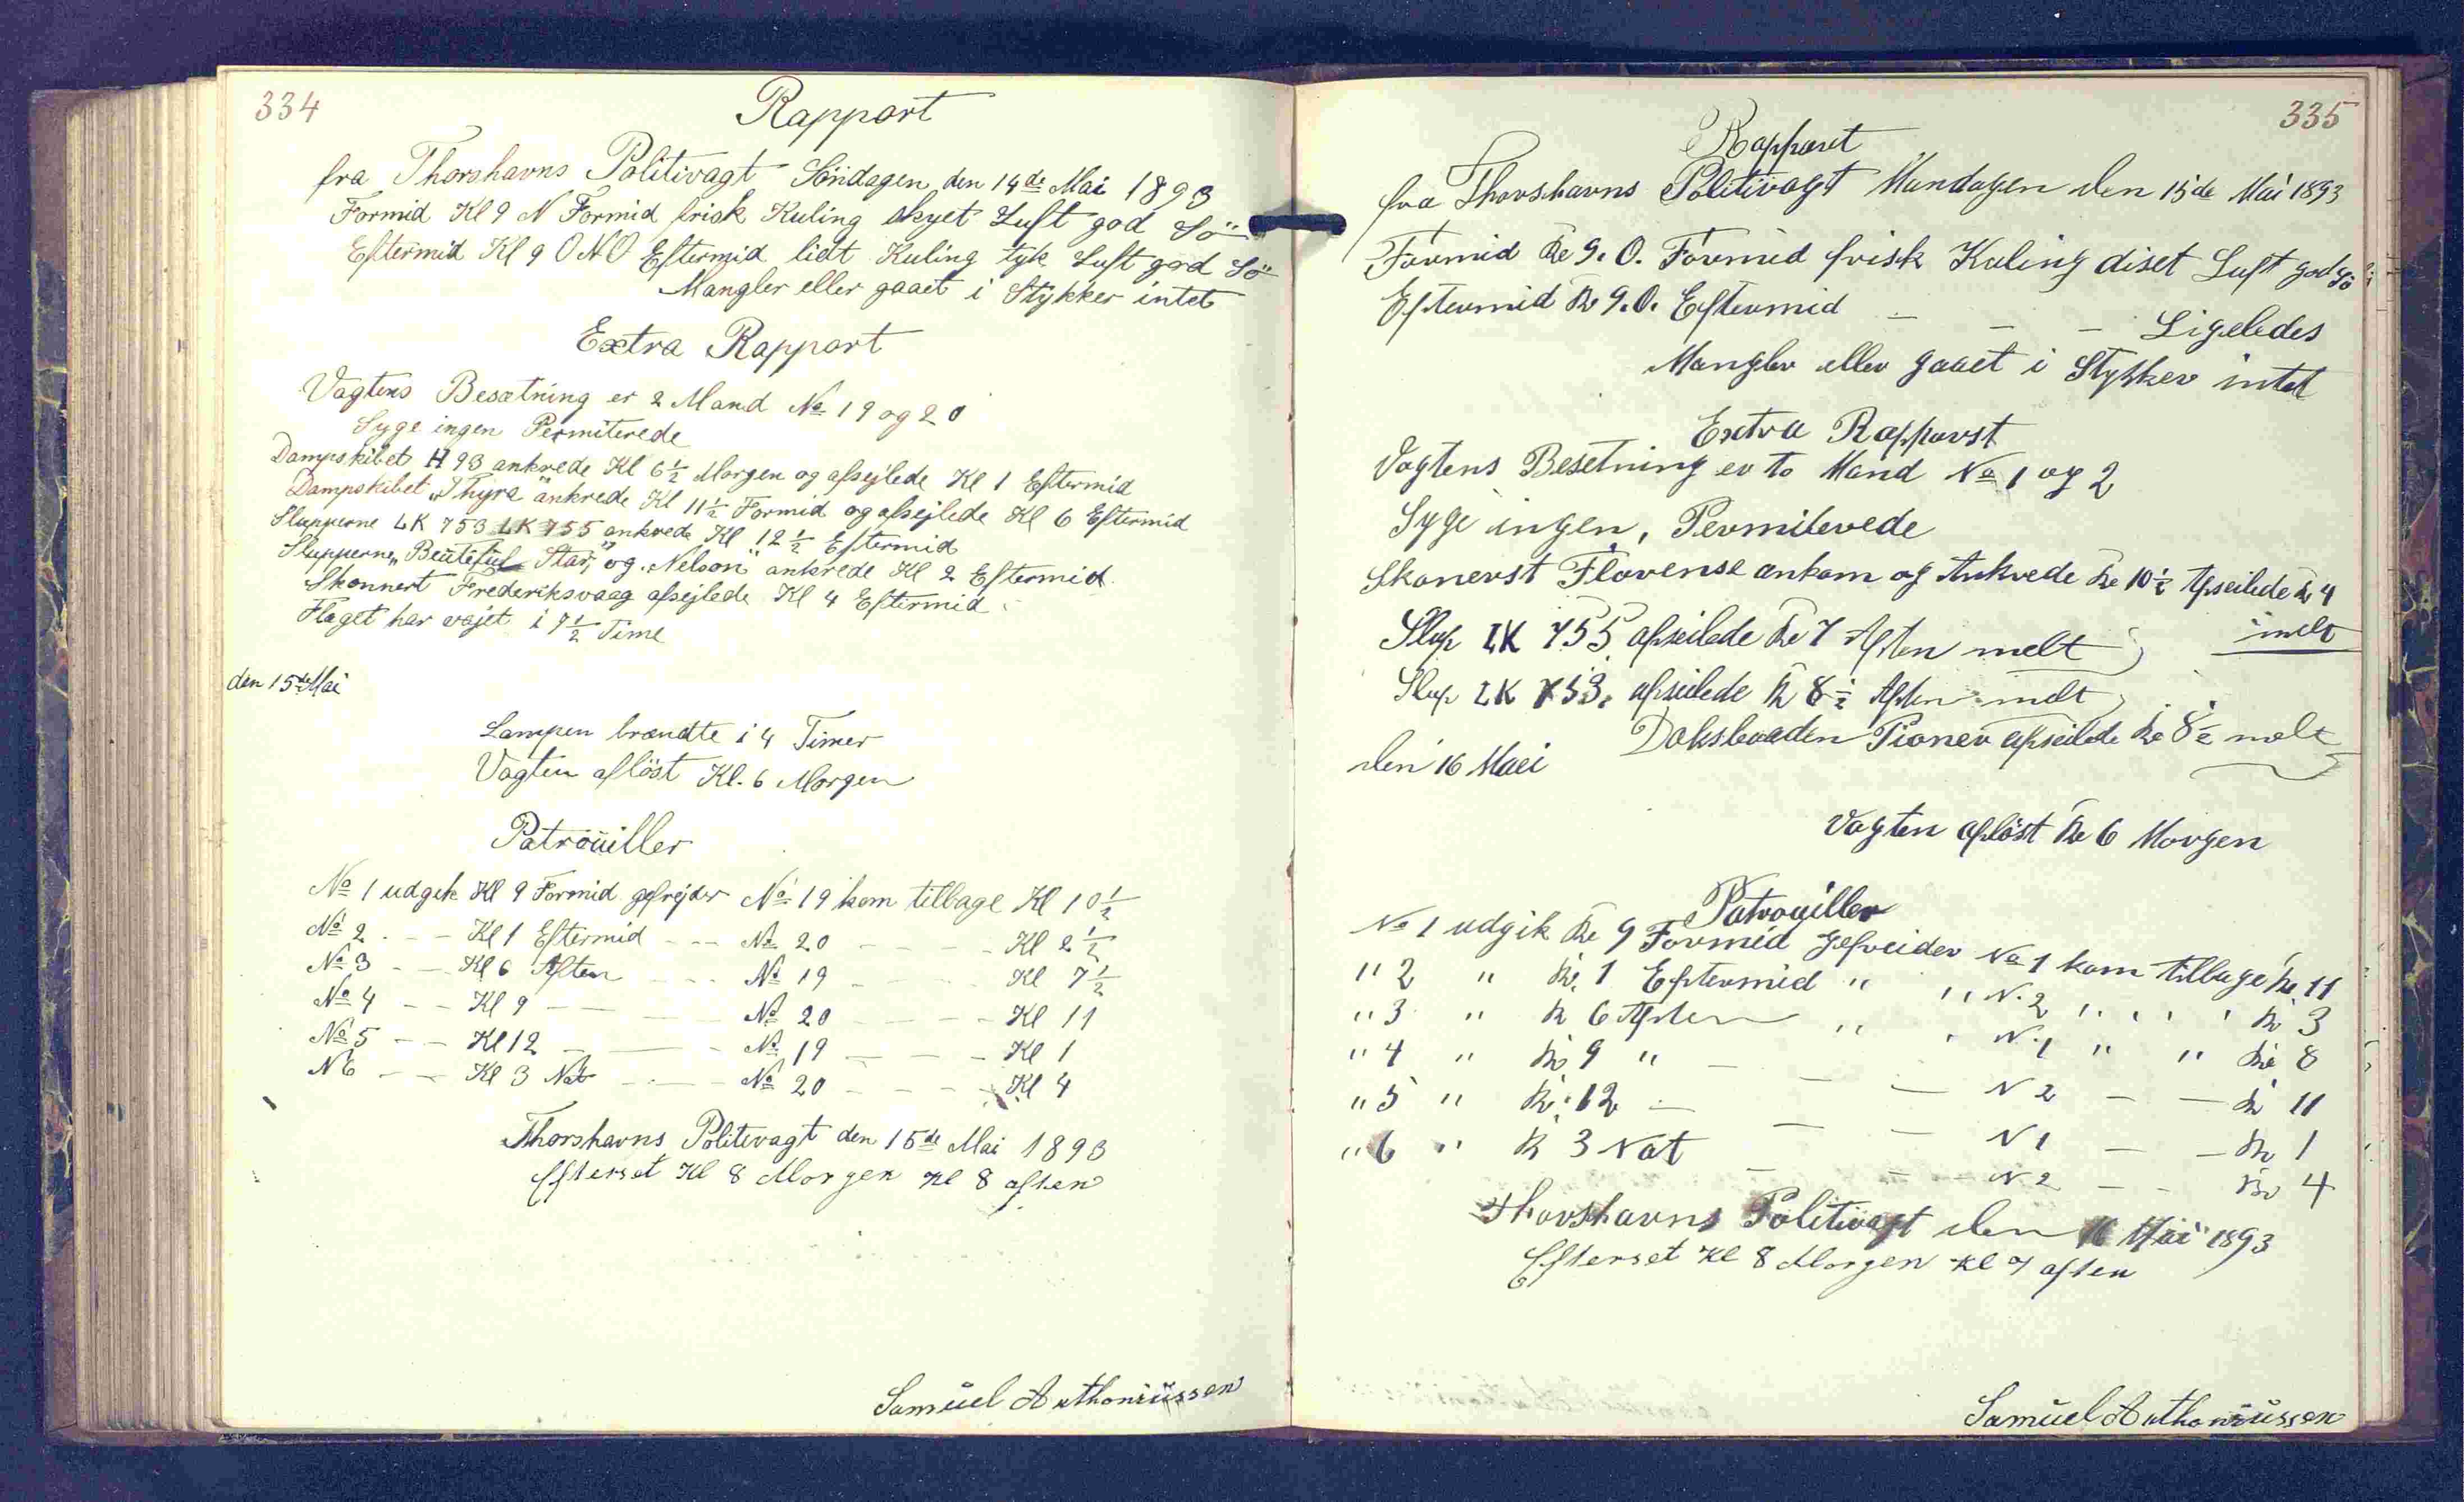 334
Rapport
fra Thorshavns Politivagt Söndagen den 14de Mai 1893
Formid Kl 9 N Formid frisk Kuling skyet Luft god Sö
Eftermid Kl 9 ONO Eftermid lidt Kuling tyk Luft god Sö
Mangler eller gaaet i Stykker intet
Extra Rapport
Vagtens Besætning er 2 Mand No 19 og 20
Syge ingen Permiterede
Dampskibet H 93 ankrede Kl 6½ Morgen og afsejlede Kl 1 Eftermid
Dampskibet „Thyra" ankrede Kl 11½ Formid og afsejlede Kl 6 Eftermid
Slupperne LK 753 LK 755 ankrede Kl 12½ Eftermid
Slupperne „Beuteful Star," og „Nelson" ankrede Kl 2 Eftermid
Skonnert Frederiksvaag afsejlede Kl 4 Eftermid
Flaget har vajet i 7½ Time
den 15de Mai
Lampen brændte i 4 Timer
Vagten aflöst Kl. 6 Morgen
Patrouiller
No 1 udgik Kl 9 Formid gefrejder No 19 kom tilbage Kl 10½
No 2 - - Kl 1 Eftermid - - No 20 - - - Kl 2½
No 3 - - Kl 6 Aften - - No 19 - - - Kl 7½
No 4 - - Kl 9 - - - No 20 - - - Kl 11
No 5 - - Kl 12 - - - No 19 - - - Kl 1
N 6 - - Kl 3 Nat - - - No 20 - - - Kl 4
Thorshavns Politivagt den 15de Mai 1893
Efterset Kl 8 Morgen Kl 8 aften
Samüel Anthoniüssen
335
Rapport
fra Thorshavns Politivagt Mandagen den 15de Mai 1893
Formid Kl 9. O. Formid frisk Kuling diset Luft god Sö
Eftermid Kl 9. O. Eftermid - - - Ligeledes
Mangler eller gaaet i Stykker intet
Extra Rapporst
Vagtens Besetning er to Mand No 1 og 2
Syge ingen, Permiterede
Skonerst Florense ankom og Ankrede Kl 10½ Afseilede Kl 4
melt
Slup LK 755 afseilede Kl 7 Aften melt
Slup LK 753. afseilede Kl 8½ Aften melt
Doksbaaden Pioner afseilede Kl 8½ melt
den 16 Maei
Vagten aflöst Kl 6 Morgen
Patrouiller
No 1 udgik Kl 9 Formid gefreider No 1 kom tilbage Kl. 11
" 2 " Kl. 1 Eftermid " " N. 2 " " " " Kl 3
" 3 " Kl 6 Aften " " N. 1 " " Kl 8
" 4 " Kl 9 " - - - N 2 - - Kl 11
" 5 " Kl. 12 - - - N 1 - - Kl 1
" 6 " Kl 3 Nat - - - N 2 - - Kl 4
Thorshavns Politivagt den 16 Mai 1893
Efterset Kl 8 Morgen Kl 7 aften
Samüel Anthoniüssen